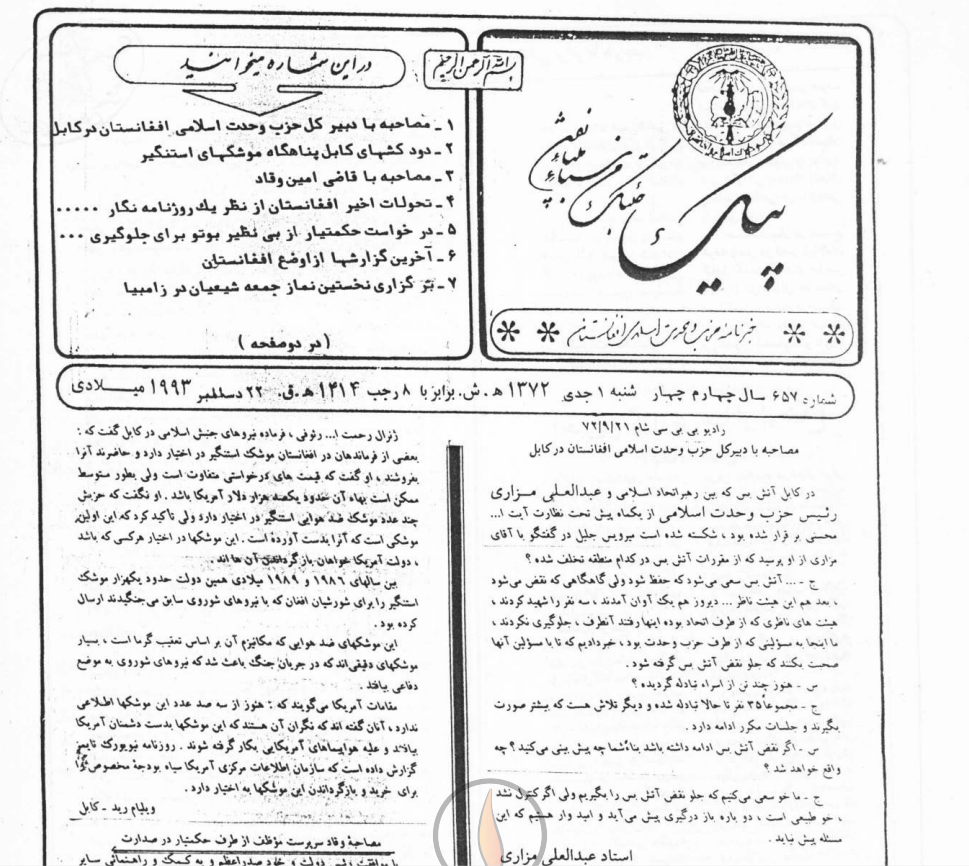 بسم الله الرحمن الرحیم
پیک
خبرنامه حزب وحدت اسلامی افغانستان
در این شماره میخوانید
۱ ـ مصاحبه با دبیر کل حزب وحدت اسلامی افغانستان در کابل
۲ ـ دود کشهای کابل پناهگاه موشکهای استنگیر
۳ ـ مصاحبه با قاضی امین وقاد
۴ ـ تحولات اخیر افغانستان از نظر یك روزنامه نگار .....
۵ ـ در خواست حکمتیار از بی نظیر بوتو برای جلوگیری ...
۶ ـ آخرین گزارشها از اوضع افغانستان
۷ ـ بر گزاری نخستین نماز جمعه شیعیان در زامبیا
( در دوصفحه )
شماره ۶۵۷ سال چهارم چهار شنبه ۱ جدی ۱۳۷۲ ه . ش. برابر با ۸ رجب ۱۴۱۴ ه . ق. ۲۲ دسامبر ۱۹۹۳ میــلادی
رادیو بی بی سی شام ۷۲/۹/۲۱
مصاحبه با دبیرکل حزب وحدت اسلامی افغانستان درکابل
در کابل آتش بس که بین رهبراتحاد اسلامی و عبدالعلی مـزاری
رئیس حزب وحدت اسلامی از یکماه پیش تحت نظارت آیت ا...
محسنی بر قرار شده بود ، شکسته شده است میرویس جلیل در گفتگو با آقای
مزاری از او پرسید که از مقررات آتش بس در کدام منطقه تخلف شده ؟
ج - ... آتش بس سعی می شود که حفظ شود ولی گاهگاهی که نقض می شود
، بعد هم این هیئت ناظر ... دیروز هم یک آوان آمدند ، سه نفر را شهید کردند ،
هیئت های ناظری که از طرف اتحاد بوده اینها رفتند آنطرف ، جلوگیری نکردند ،
ما اینجا به مسؤلینی که از طرف حزب وحدت بود ، خبردادیم که تا با مسؤلین آنها
صحبت بکنند که جلو نقض آتش بس گرفته شود .
س - هنوز چند تن از اسراء تبادله گردیده ؟
ج - مجموعاً ۳۵ نفر تا حالا تبادله شده و دیگر تلاش هست که بیشتر صورت
بگیرند و جلسات مکرر ادامه دارد .
س - اگر نقض آتش بس ادامه داشته باشد بناءً شما چه پیش بینی می کنید ؟ چه
واقع خواهد شد ؟
ج - ما خو سعی می کنیم که جلو نقض آتش بس را بگیریم ولی اگر کنترل نشد
، خو طبیعی است ، دو باره باز درگیری پیش می آید و امید وار هستیم که این
مسئله پیش نیاید .
استاد عبدالعلی مزاری
ژنرال رحمت ا... رئوفی ، فرمانده نیروهای جنبش اسلامی در کابل گفت که :
بعضی از فرماندهان در افغانستان موشک استنگیر در اختیار دارد و حاضرند آنرا
بفروشند ، او گفت که قیمت های درخواستی متفاوت است ولی بطور متوسط
ممکن است بهاء آن حدود یکصد هزار دلار آمریکا باشد . او نگفت که حزبش
چند عدد موشک ضد هوایی استنگیر در اختیار دارد ولی تاکید کرد که این اولین
موشکی است که آنرا بدست آورده است . این موشکها در اختیار هرکسی که باشد
، دولت آمریکا خواهان باز گرداندن آن ها اند .
بین سالهای ۱۹۸۶ و ۱۹۸۹ میلادی همین دولت حدود یکهزار موشک
استنگیر را برای شورشیان افغان که با نیروهای شوروی سابق می جنگیدند ارسال
کرده بود .
این موشکهای ضد هوایی که مکانیزم آن بر اساس تعقیب گرما است ، بسیار
موشکهای دقیقی اند که در جریان جنگ باعث شد که نیروهای شوروی به موضع
دفاعی بیافتد .
مقامات آمریکا می گویند که : هنوز از سه صد عدد این موشکها اطلاعی
ندارد ، آنان گفته اند که نگران آن هستند که این موشکها بدست دشمنان آمریکا
بیافتد و علیه هواپیماهای آمریکایی بکار گرفته شوند . روزنامه نیویورک تایمز
گزارش داده است که سازمان اطلاعات مرکزی آمریکا سیاه بودجهٔ مخصوصی را
برای خرید و بازگرداندن این موشکها به اختیار دارد .
ویلیام رید - کابل
مصاحبهٔ وقاد سرپرست مؤظف از طرف حکمتیار در صدارت